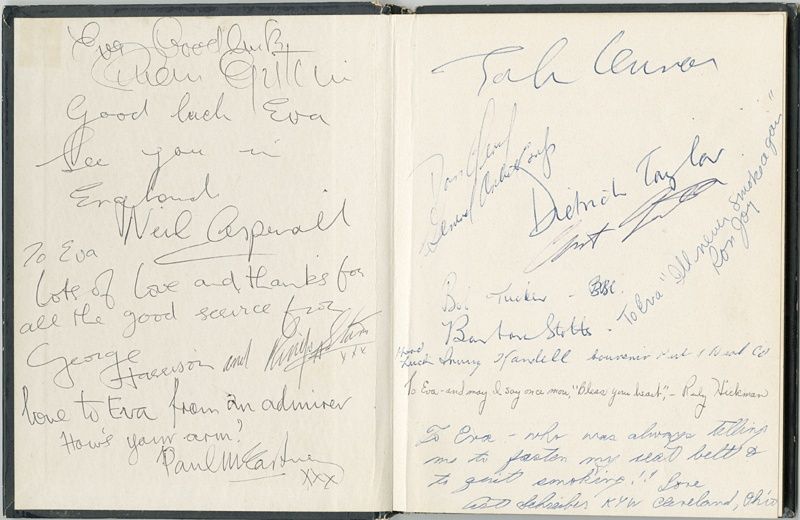 Eva Good luck
Brian Epstein
Good luck Eva
See you in
England
Neil Aspinall
To Eva
Lots of love and thanks for
all the good service from
George
Harrison and Ringo Starr
xxx
love to Eva from an admirer
How's your arm?
Paul McCartney
xxx
John Lennon
Derek Taylor
To Eva "Ill never smoke again"
Ron Joy
Bob Tucker -
Barbara
Good
luck Irving Kandell Souvenir
To Eva - and may I say once more, "Bless you heart", - Rudy Hickman
To Eva - who was always telling
me to fasten my seat belt &
to quit smoking!! Love
Art Schreiber KYW Cleveland, Ohio